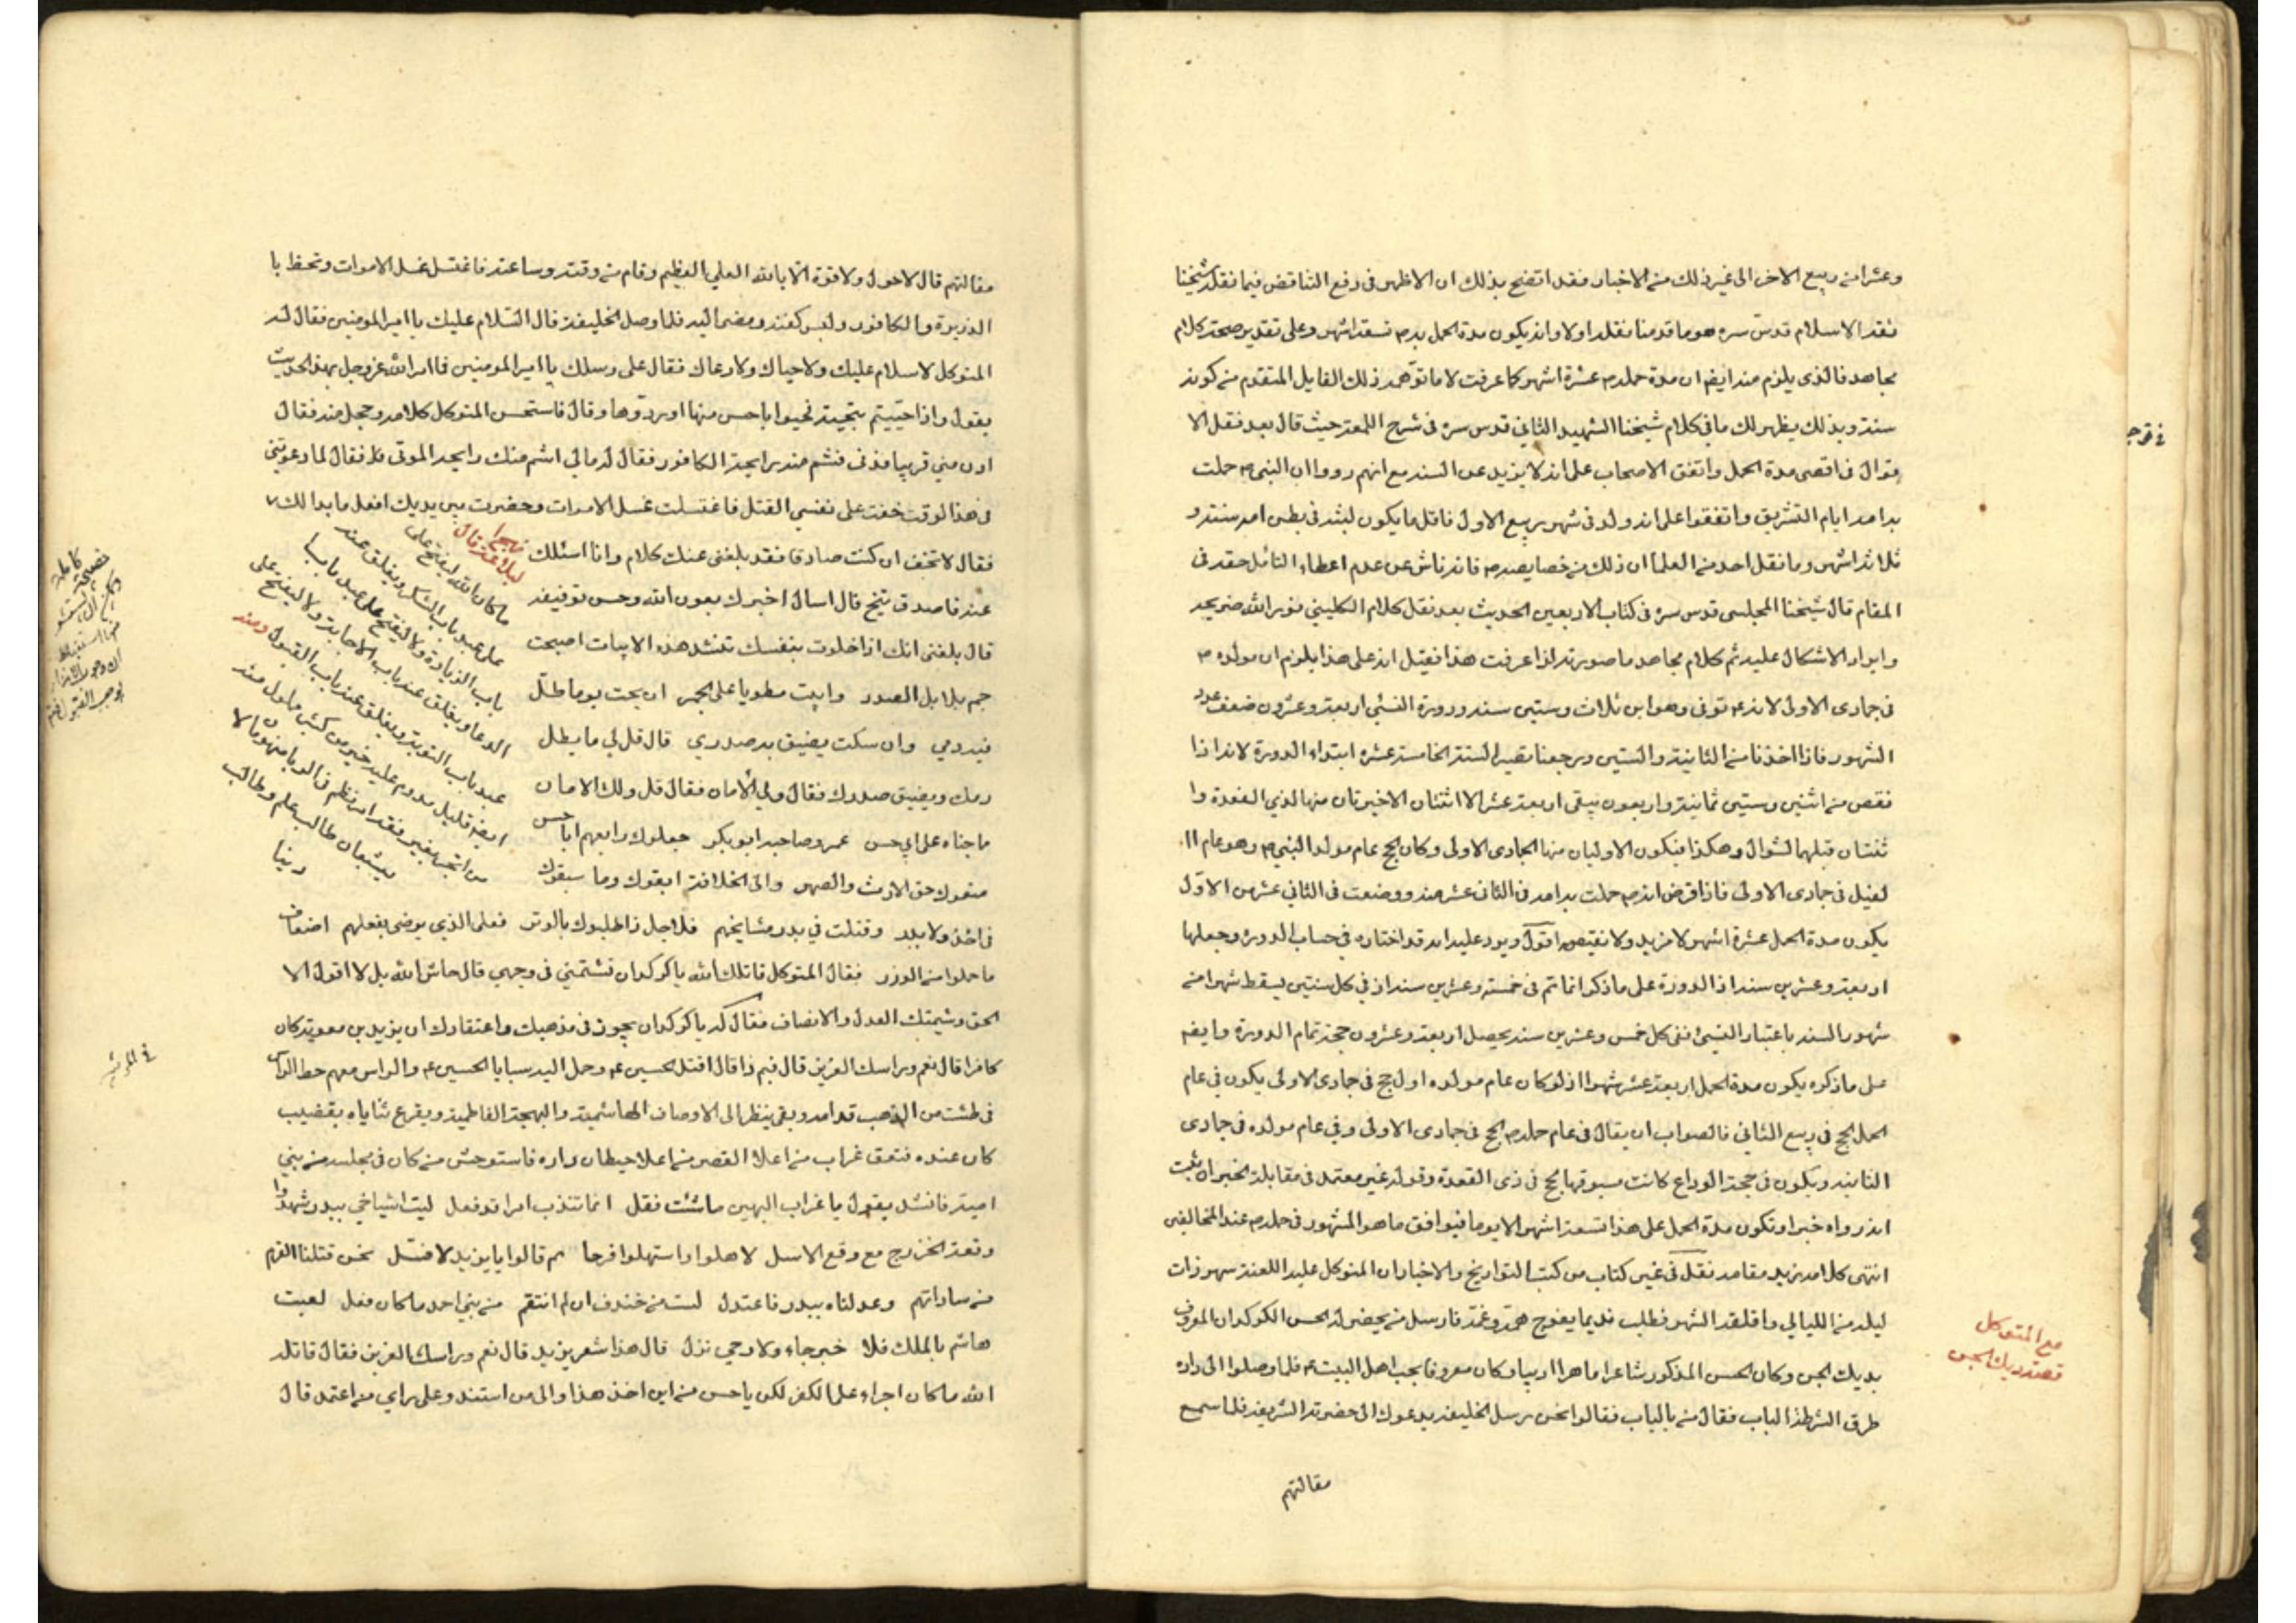 وعشرا من ربيع الاخر الى غير ذلك من الاخبار فقد اتضح بذلك ان الاظهر فى دفع التناقض فيما نقله شيخنا
ثقة الاسلام قدس سره هو ما قدمنا نقله اولا وانه يكون مدة الحمل به ص تسعة اشهر وعلى تقدير صحة كلام
مجاهد فالذى يلزم منه ايضا ان مدة حمله ص عشرة اشهر كما عرفت لا ما توهمه ذلك القايل المتقدم من كونه
سنة وبذلك يظهر لك ما فى كلام شيخنا الشهيد الثانى قدس سره فى شرح اللمعة حيث قال بعد نقل الا
قوال فى اقصى مدة الحمل واتفق الاصحاب على انه لا يزيد عن السنة مع انهم رووا ان النبى ص حملت
به امه ايام التشريق واتفقوا على انه ولد فى شهر ربيع الاول فاقل ما يكون لبثه فى بطن امه سنة و
ثلاثة اشهر وما نقل احد من العلما ان ذلك من خصايصه ص فانه ناش عن عدم اعطاء التأمل حقه فى
المقام قال شيخنا المجلسى قدس سره فى كتاب الاربعين الحديث بعد نقل كلام الكلينى نور الله ضريحه
وايراد الاشكال عليه ثم كلام مجاهد ما صورته اذا عرفت هذا فقيل انه على هذا يلزم ان مولده ص
فى جمادى الاولى لانه ع توفى وهو ابن ثلاث وستين سنة ودورة النسئ اربعة وعشرون ضعف عدد
الشهور فاذا اخذنا من الثانية والستين ورجعنا تصير السنة الخامسة عشره ابتداء الدورة لانه اذا
نقص من اثنين وستين ثمانية واربعون يبقى اربعة عشر الاثنتان الاخيرتان منها لذي القعدة وا
ثنتان قبلهما لشوال وهكذا فيكون الاوليان منها لجمادى الاولى وكان الحج عام مولد النبى ص وهو عام ال
لفيل فى جمادى الاولى فاذا فرض انه ص حملت به امه فى الثانى عشر منه ووضعت فى الثانى عشر من الاول
يكون مدة الحمل عشرة اشهر لا مزيد ولا نقيصة اقول ويرد عليه انه قد اختاره فى حساب الدورة وجعلها
اربعة وعشرين سنة اذ الدورة على ما ذكر انما تتم فى خمسة وعشرين سنة اذ فى كل سنتين يسقط شهرا من
شهور السنة باعتبار النسئ ففى كل خمس وعشرين سنة يحصل اربعة وعشرون حجة تمام الدورة وايضا
على ما ذكره يكون مدة الحمل اربعة عشر شهرا اذ لو كان عام مولده اول حج فى جمادى الاولى يكون فى عام
الحمل الحج فى ربيع الثانى فالصواب ان يقال فى عام حمله ص الحج فى جمادى الاولى وفى عام مولده فى جمادى
الثانية ويكون فى حجة الوداع كانت مسبوقة بالحج فى ذى القعدة وقوله غير معتمد فى مقابلة الخبر ان ثبت
انه رواه خبرا وتكون مدة الحمل على هذا تسعة اشهر الا يوما فيوافق ما هو المشهور فى حمله ص عند المخالفين
انتهى كلامه زيد مقامه نقل فى غير كتاب من كتب التواريخ والاخبار ان المتوكل عليه اللعنة سهر ذات
ليلة من الليالي واقلقه السهر فطلب نديما يفرج همه وغمه فارسل من يحضر له الحسن الكركدان المعروف
بديك الجن وكان الحسن المذكور شاعرا ماهرا اديبا وكان معروفا بحب اهل البيت ع فلما وصلوا الى داره
طرق الشرطة الباب فقال من بالباب فقالوا نحن رسل الخليفة يدعوك الى حضرته الشريفة فلما سمع
مع المتوكل
قصة ديك الجن
مقالتهم
مقالتهم قال لا حول ولا قوة الا بالله العلي العظيم وقام من وقته وساعته فاغتسل غسل الاموات وتحنط با
الذريرة والكافور ولبس كفنه ومضى اليه فلما وصل الخليفة قال السلام عليك يا امير المومنين فقال له
المتوكل لا سلام عليك ولا حياك ولا رعاك فقال على رسلك يا امير المومنين فما امر الله عز وجل بهذا الحديث
يقول واذا حييتم بتحية فحيوا باحسن منها او ردوها وقال فاستحسن المتوكل كلامه وخجل منه فقال
ادن مني قريبا فدنى فشم منه رايحة الكافور فقال له مالي اشم منك رايحة الموتى فقال لما دعوتنى
فى هذا الوقت خفت على نفسي القتل فاغتسلت غسل الاموات وحضرت بين يديك افعل ما بدا لك
فقال لا تخف ان كنت صادقا فقد بلغنى عنك كلام وانا اسئلك
عنه فاصدق تنج قال اسال اخبرك بعون الله وحسن توفيقه
قال بلغنى انك اذا خلوت بنفسك تنشد هذه الابيات اصبحت
جم بلابل الصدر وابيت مطويا على الجمر ان بحت يوما طل
فيه دمي وان سكت يضيق به صدري قال قل لي ما يطل
دمك ويضيق صدرك فقال ولي الامان فقال قل ولك الامان
ما جناه على ابى حسن عمر وصاحبه ابو بكر جعلوك رابعهم ابا حسن
منعوك حق الارث والصهر والى الخلافة ابقوك وما سبقوك
فى احد ولا بدر وقتلت في بدر مشايخهم فلاجل ذا طلبوك بالوتر فعلى الذي يرضى بفعلهم اضعاف
ما حملوا من الوزر فقال المتوكل قاتلك الله يا كركدان تشتمني فى وجهي قال حاش الله بل لا اقول الا
الحق وشيمتك العدل والانصاف فقال له يا كركدان يجوز فى مذهبك واعتقادك ان يزيد بن معوية كان
كافرا قال نعم وراسك العزيز قال فبم ذا قال اقتل الحسين ع وحمل اليه سبايا الحسين ع والراس معهم حط الراس
فى طشت من الذهب قدامه وبقى ينظر الى الاوصاف الهاشمية والبهجة الفاطمية ويقرع ثناياه بقضيب
كان عنده فنعق غراب من اعلا القصر من اعلا حيطان داره فاستوحش من كان فى مجلسه من بني
امية فانشد يقول يا غراب البين ما شئت فقل انما تندب امرا قد فعل ليت اشياخي ببدر شهدوا
وقعة الخزرج مع وقع الاسل لاهلوا واستهلوا فرحا ثم قالوا يا يزيد لا فشل نحن قتلنا القرم
من ساداتهم وعدلناه ببدر فاعتدل لست من خندف ان لم انتقم من بني احمد ما كان فعل لعبت
هاشم بالملك فلا خبر جاء ولا وحي نزل قال هذا شعر يزيد قال نعم وراسك العزيز فقال قاتله
الله ما كان اجراه على الكفر لكن يا حسن من اين اخذ هذا والى من استند وعلى راي من اعتمد قال
ما كان الله ليفتح على
على عبد باب الشكر ويغلق عنه
باب الزيادة ولا ليفتح على عبد باب
الدعا ويغلق عنه باب الاجابة ولا ليفتح على
عبد باب التوبة ويغلق عنه باب القبول ومنه
ايضا قليل مدوم عليه خير من كثير مملول منه
يشبعان طالب علم وطالب
دنيا